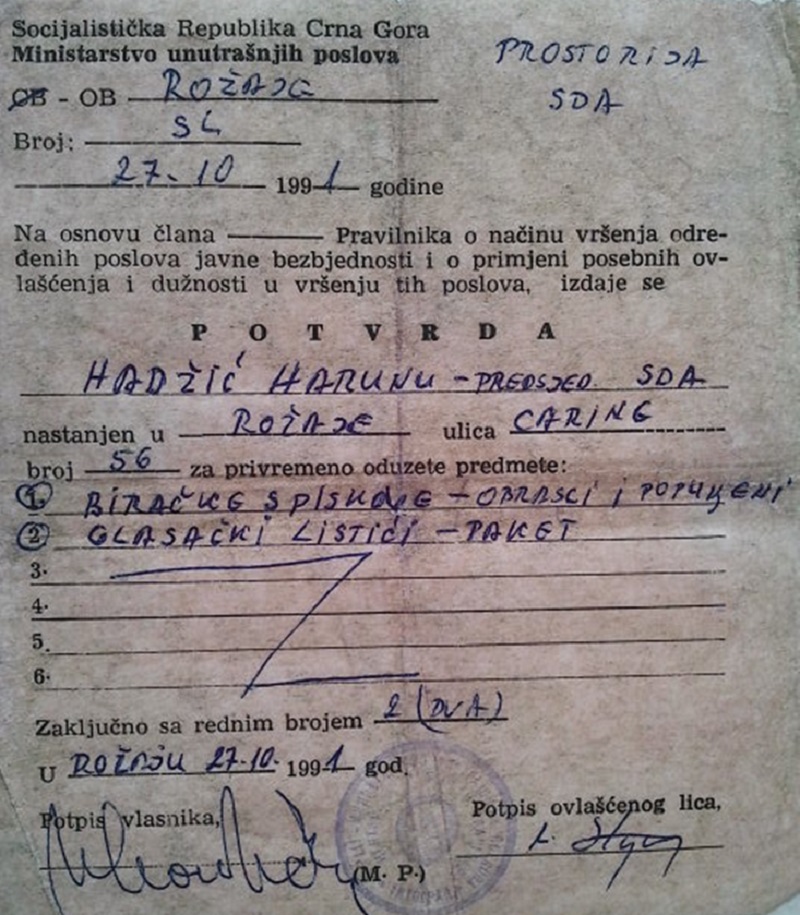 Socijalistička Republika Crna Gora
Ministarstvo unutrašnjih poslova
PROSTORIJA
SDA
OB - OB ROŽAJE
Broj:
27.10 1991 godine
Na osnovu člana Pravilnika o načinu vršenja odre-
đenih poslova javne bezbjednosti i o primjeni posebnih ov-
lašćenja i dužnosti u vršenju tih poslova, izdaje se
POTVRDA
HADŽIĆ HARUNU - PREDSJED. SDA
nastanjen u ROŽAJE ulica CARINE
broj 56 za privremeno oduzete predmete:
1. BIRAČKE SPISKOVE - OBRASCI I POPUNJENI
2. GLASAČKI LISTIĆI - PAKET
3.
4.
5.
6.
Zaključno sa rednim brojem 2 (DVA)
U ROŽAJU 27.10. 1991 god.
Potpis vlasnika,
Potpis ovlašćenog lica,
(M. P.)